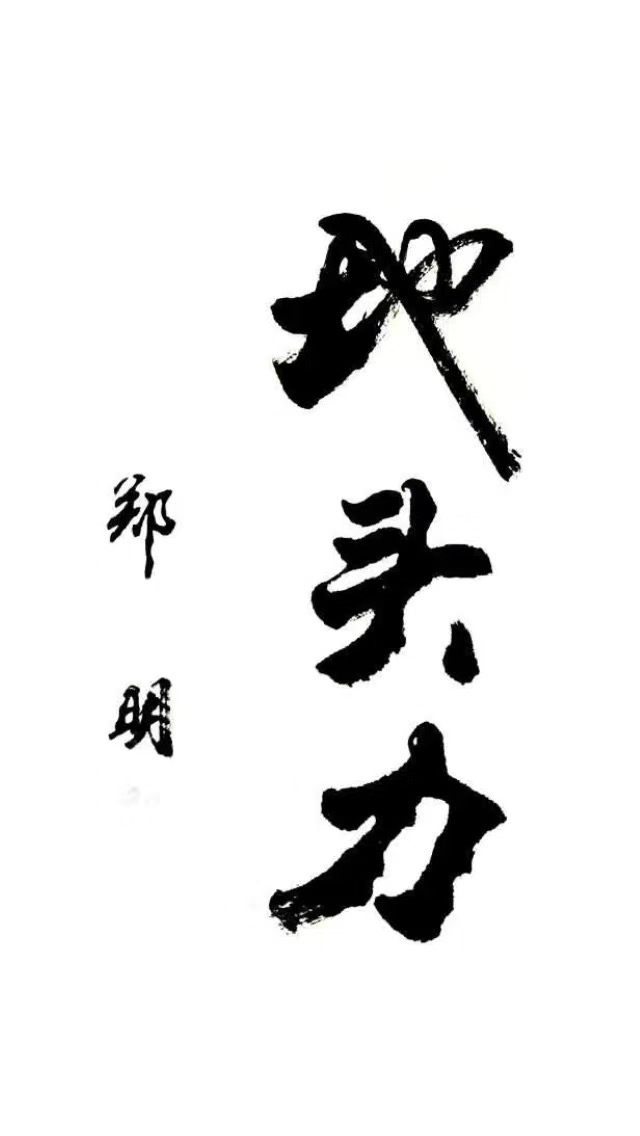 地头力
郑明